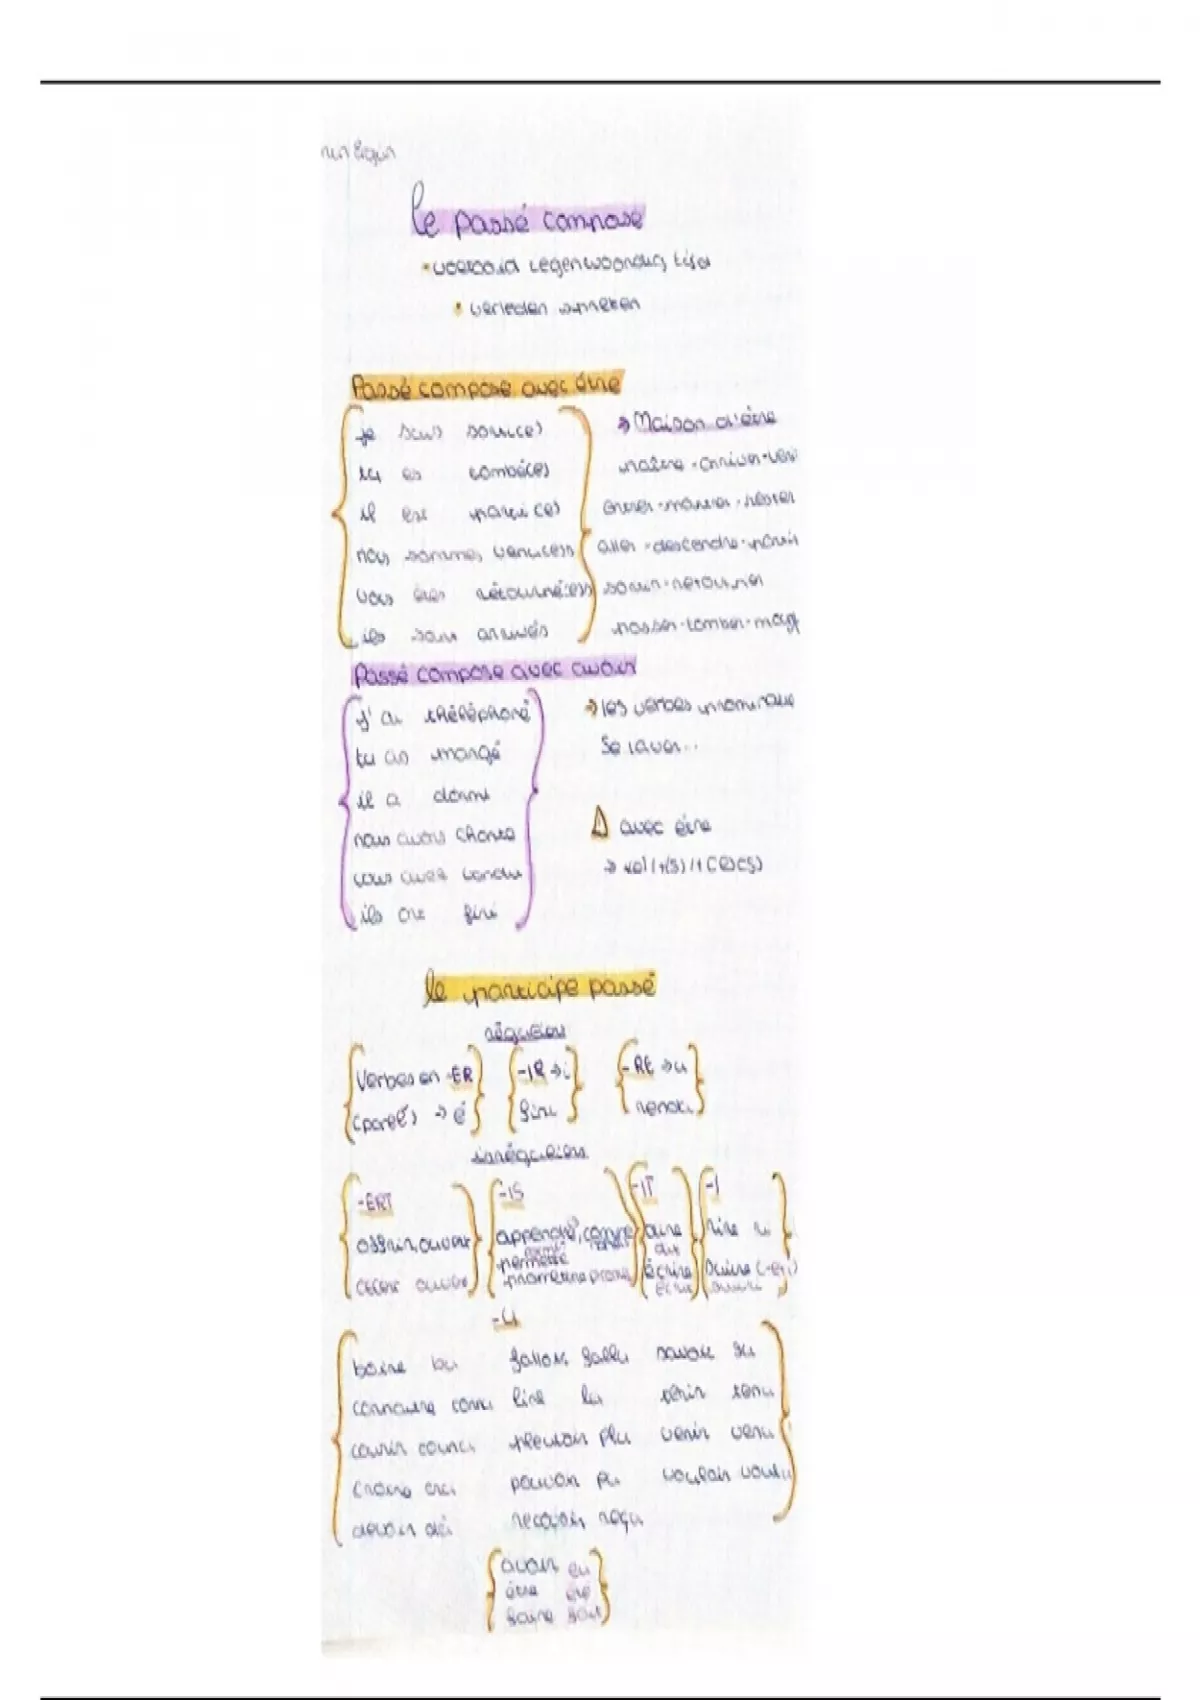 le passé composé
• voltooid tegenwoordig tijd
• verleden spreken
Passé composé avec être
je suis sorti(e)
tu es tombé(e)
il est parti(e)
nous sommes venu(e)s
vous êtes retourné(e)s
ils sont arrivés
→ Maison d'être
naître - arriver - veni
entrer - monter - rester
aller - descendre - partir
sortir - retourner
passer - tomber -
Passé composé avec avoir
j'ai théléphoné
tu as mangé
il a dormi
nous avons chanté
vous avez vendu
ils ont fini
→ les verbes pronominaux
se laver...
⚠ avec être
le participe passé
réguliers
Verbes en -ER
(parlé) → é
-IR → i
fini
-RE → u
rendu
irréguliers
-ERT
offrir, ouvrir
offert ouvert
-IS
apprendre,
permettre
promettre promis
-IT
dire
dit
écrire
écrit
-I
rire ri
suivre
suivi
-U
boire bu
connaitre connu
courir couru
croire cru
devoir dû
falloir fallu
lire lu
pleuvoir plu
pouvoir pu
recevoir reçu
savoir su
tenir tenu
venir venu
vouloir voulu
avoir eu
être été
faire fait